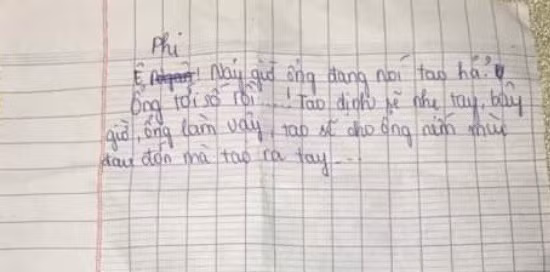 Phi
Ê! Nãy giờ ông đang nói tao hả?
Ông tới số rồi....! Tao định sẽ nhẹ tay, bây
giờ, ông làm vậy, tao sẽ cho ông nếm mùi
đau đớn mà tao ra tay...